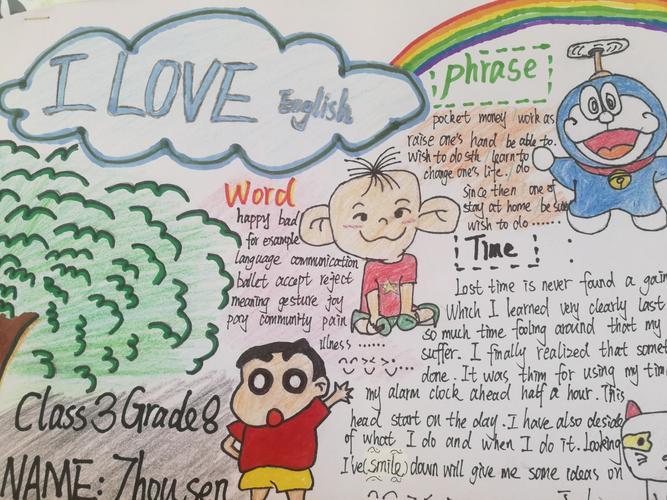 I LOVE English
phrase
pocket money work as
raise one's hand be able to.
wish to do sth learn to
change one's life. do
Since then one of
stay at home be sure
wish to do ......
Word
happy bad
for esample
language communication
ballet accept reject
meaning gesture joy
pay community pain
illness ......
Time
Lost time is never found a gain
Which I learned very clearly last
so much time fooing around that my
suffer. I finally realized that somet
done. It was them for using my tim
my alarm clock ahead half a hour. This
head start on the day. I have also deside
of what I do and when I do it. Looking
I've (smile) down will give me some ideas on
Class 3 Grade 8
NAME: Zhou sen